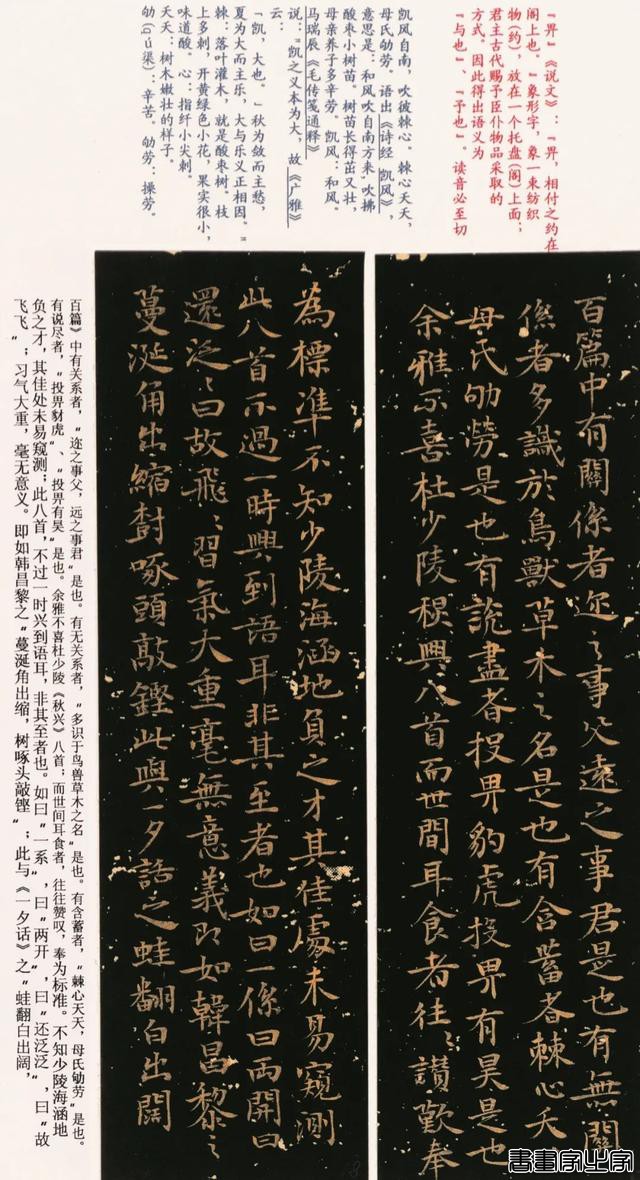 "畀"《说文》："畀，相付之约在
阁上也。"象形字，象一束纺织
物(约)，放在一个托盘(阁)上面；
君主古代赐予臣仆物品采取的
方式。因此得出语义为
"与也"、"予也"。读音必至切
凯风自南，吹彼棘心。棘心夭夭，
母氏劬劳。语出《诗经 凯风》，
意思是：和风吹自南方来，吹拂
酸枣小树苗。树苗长得茁又壮，
母亲养子多辛劳。凯风：和风。
马瑞辰《毛传笺通释》
说："凯之义本为大，故《广雅》
云：
"凯，大也。"秋为敛而主愁，
夏为大而主乐，大与乐义正相因。"
棘：落叶灌木，就是酸枣树。枝
上多刺，开黄绿色小花，果实很小，
味道酸。心：指纤小尖刺。
夭夭：树木嫩壮的样子。
劬(qú渠)：辛苦。劬劳：操劳。
百篇中有關係者迩之事父遠之事君是也有無關
係者多識於鳥獸草木之名是也有含蓄者棘心夭
母氏劬勞是也有說盡者投畀豹虎投畀有昊是也
余雅不喜杜少陵秋興八首而世間耳食者往往讚歎奉
為標準不知少陵海涵地負之才其佳處未易窺測
此八首不過一時興到語耳非其至者也如曰一係曰兩開曰
還泛泛曰故飛飛習氣大重毫無意義即如韓昌黎之
蔓涎角出縮樹啄頭敲鏗此與一夕話之蛙翻白出闊
百篇》中有关系者，"迩之事父，远之事君"是也。有无关系者，"多识于鸟兽草木之名"是也。有含蓄者，"棘心夭夭，母氏劬劳"是也。
有说尽者，"投畀豺虎"、"投畀有昊"是也。余雅不喜杜少陵《秋兴》八首；而世间耳食者，往往赞叹，奉为标准。不知少陵海涵地
负之才，其佳处未易窥测；此八首，不过一时兴到语耳，非其至者也。如曰"一系"，曰"两开"，曰"还泛泛"，曰"故
飞飞"；习气大重，毫无意义。即如韩昌黎之"蔓涎角出缩，树啄头敲铿"；此与《一夕话》之"蛙翻白出阔，
書畫家之家